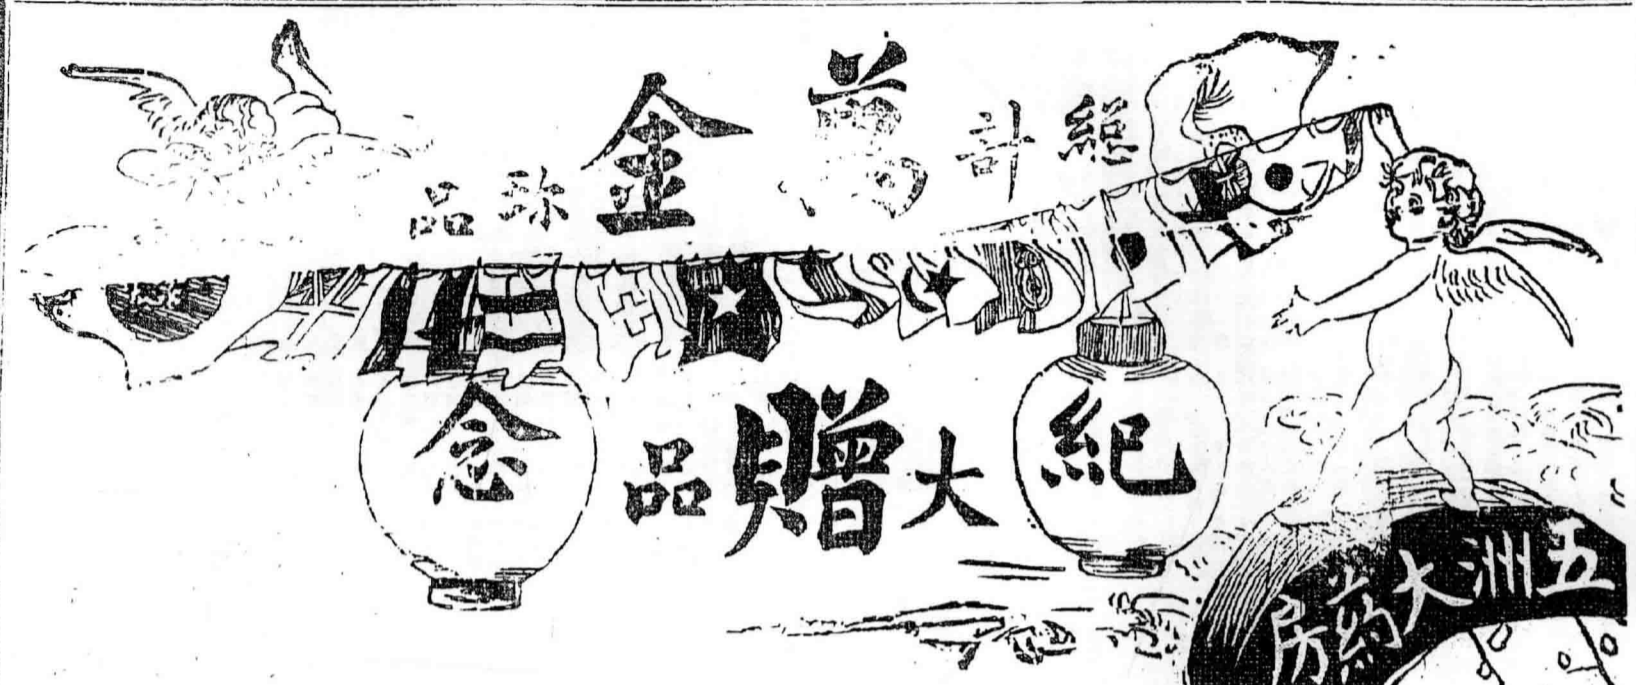 總計萬金珎品
紀念
大贈品
五洲大葯房